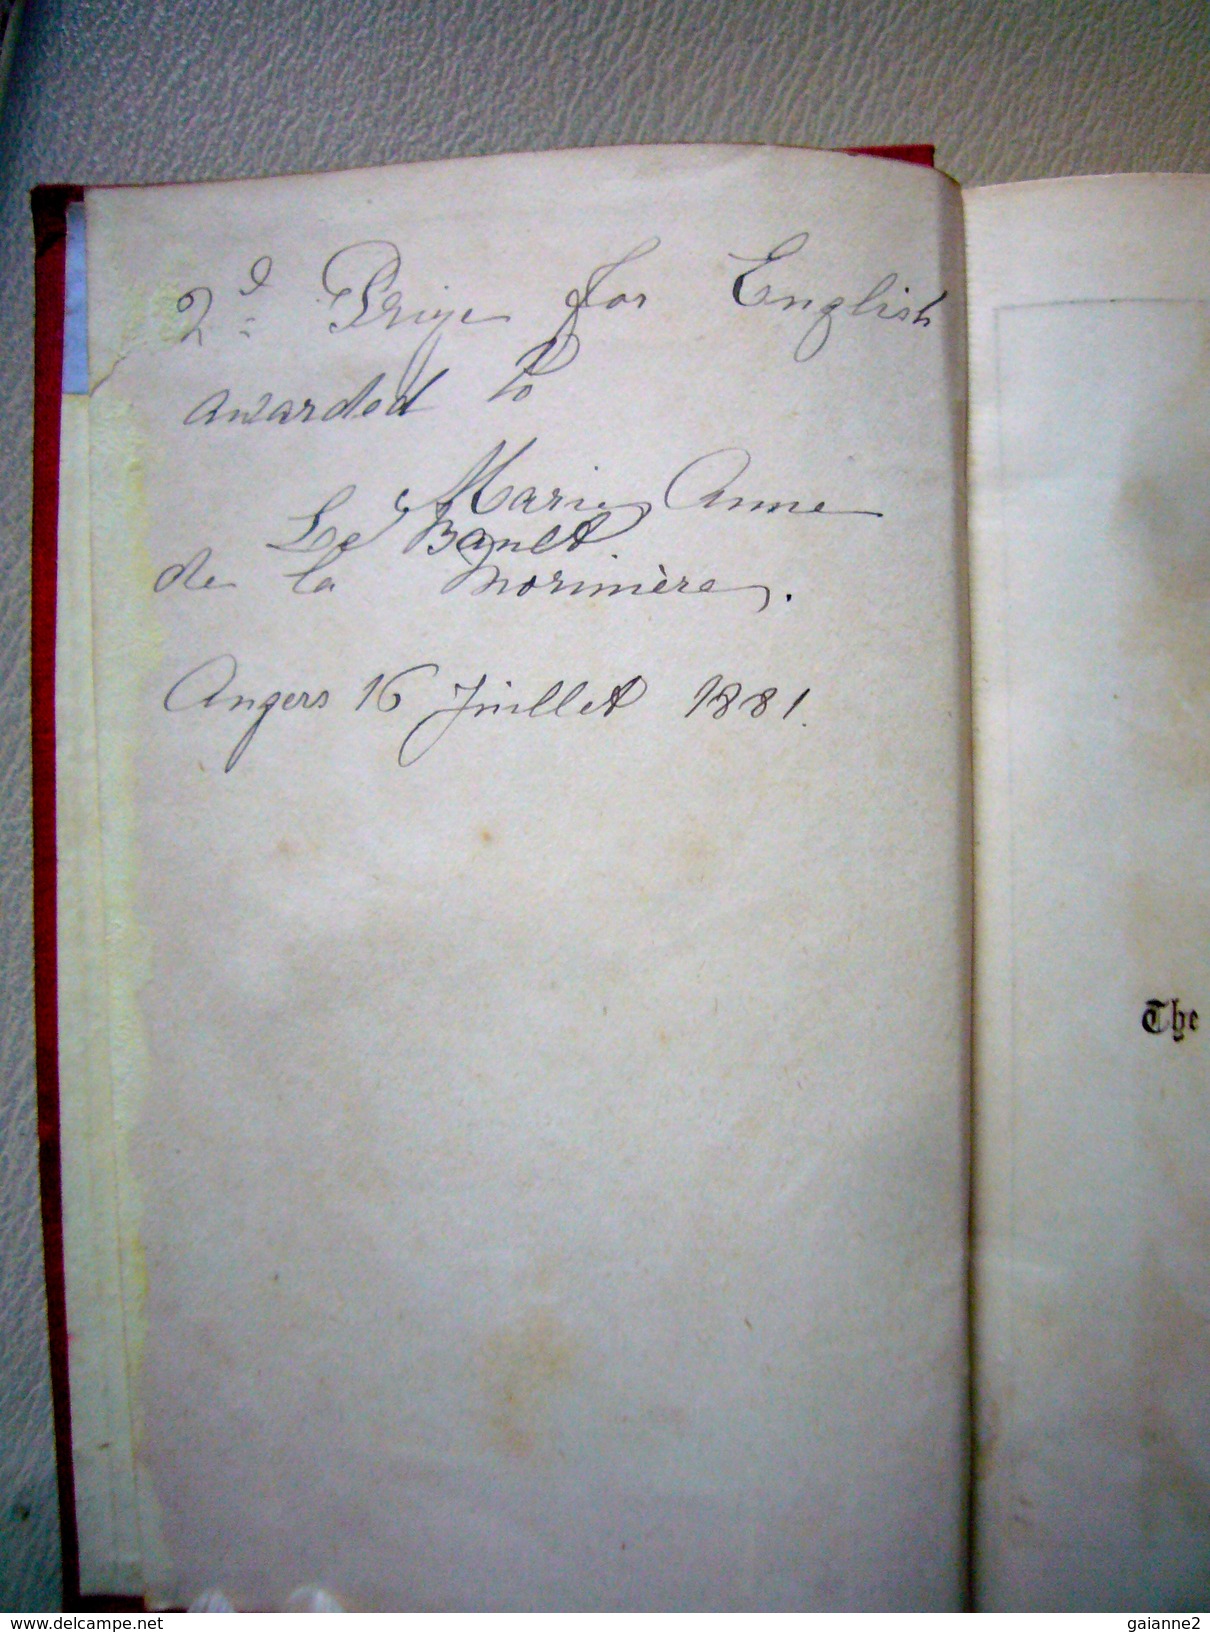 2d Prize for English
awarded to
Marie Anne
Le Bault
de la Morinière.
Angers 16 Juillet 1881.
The
delcampe.net
gaianne2